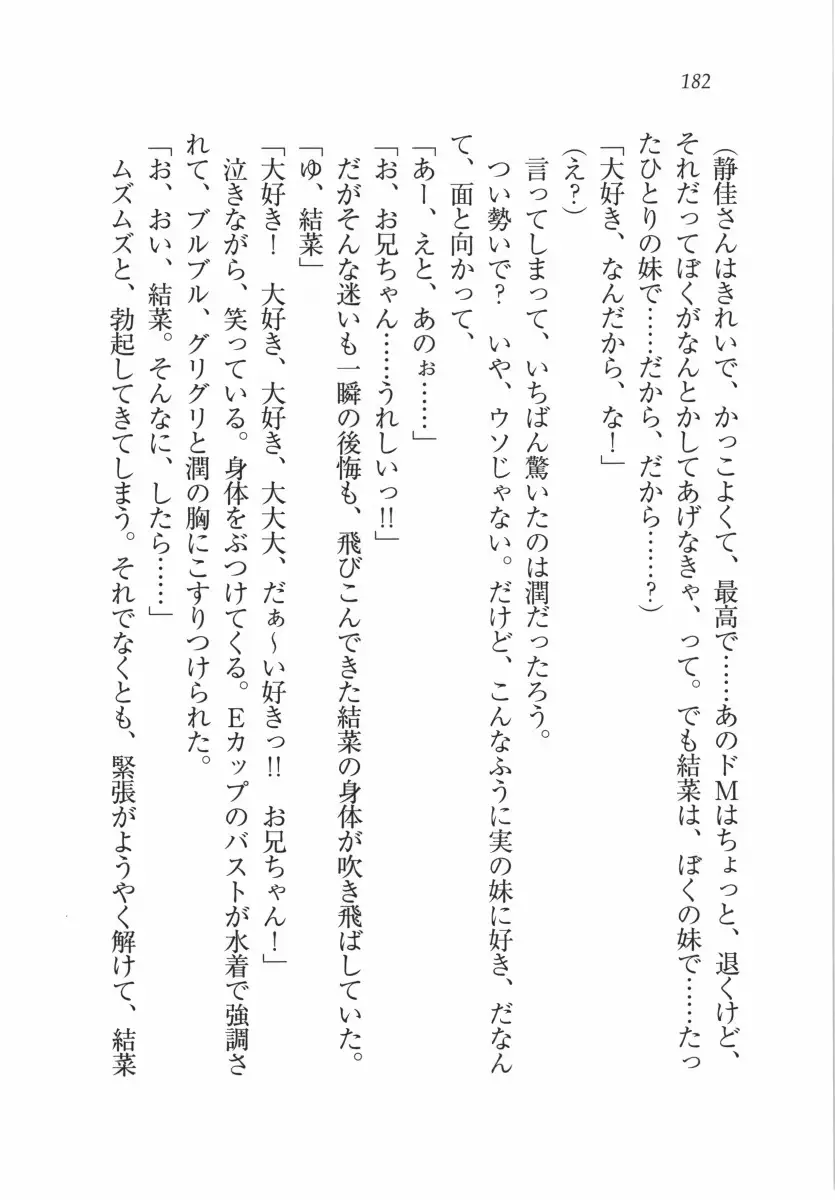 182
(静佳さんはきれいで、かっこよくて、最高で……あのドMはちょっと、退くけど、
それだってぼくがなんとかしてあげなきゃ、って。でも結菜は、ぼくの妹で……たっ
たひとりの妹で……だから、だから……?)
「大好き、なんだから、な!」
(え?)
言ってしまって、いちばん驚いたのは潤だったろう。
つい勢いで? いや、ウソじゃない。だけど、こんなふうに実の妹に好き、だなん
て、面と向かって、
「あー、えと、あのぉ……」
「お、お兄ちゃん……うれしいっ!!」
だがそんな迷いも一瞬の後悔も、飛びこんできた結菜の身体が吹き飛ばしていた。
「ゆ、結菜」
「大好き! 大好き、大好き、大大大、だぁ〜い好きっ!! お兄ちゃん!」
泣きながら、笑っている。身体をぶつけてくる。Eカップのバストが水着で強調さ
れて、ブルブル、グリグリと潤の胸にこすりつけられた。
「お、おい、結菜。そんなに、したら……」
ムズムズと、勃起してきてしまう。それでなくとも、緊張がようやく解けて、結菜